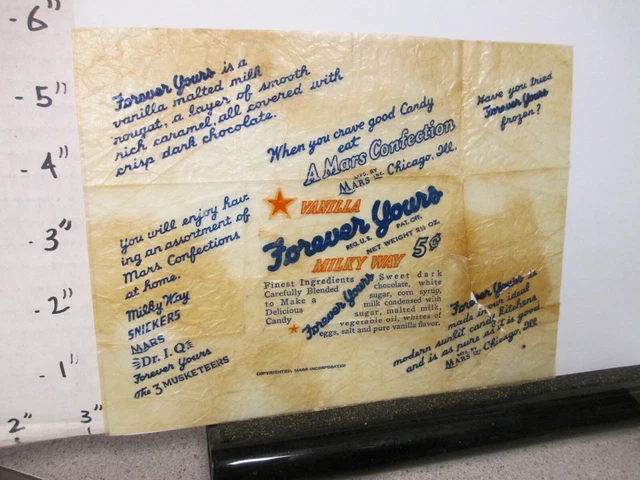 - 6"
- 5"
- 4"
- 3"
- 2"
- 1"
2"
3"
Forever Yours is a
vanilla malted milk
nougat, a layer of smooth
rich caramel, all covered with
crisp dark chocolate.
When you crave good Candy
eat
A Mars Confection
MFD. BY
MARS INC. Chicago, Ill.
Have you tried
Forever Yours
frozen?
You will enjoy hav-
ing an assortment of
Mars Confections
at home.
Milky Way
SNICKERS
MARS
Dr. I.Q.
Forever Yours
The 3 MUSKETEERS
VANILLA
Forever Yours
REG. U.S. PAT. OFF.
NET WEIGHT OZ.
5¢
MILKY WAY
Finest Ingredients
Carefully Blended
to Make a
Delicious
Candy
Forever Yours
Sweet dark
chocolate, white
sugar, corn syrup,
milk condensed with
sugar, malted milk,
vegetable oil, whites of
eggs, salt and pure vanilla flavor.
Forever Yours is
made in our ideal
modern sunlit candy kitchens
and is as pure as it is good
MARS INC. Chicago, Ill.
COPYRIGHTED, MARS INCORPORATED